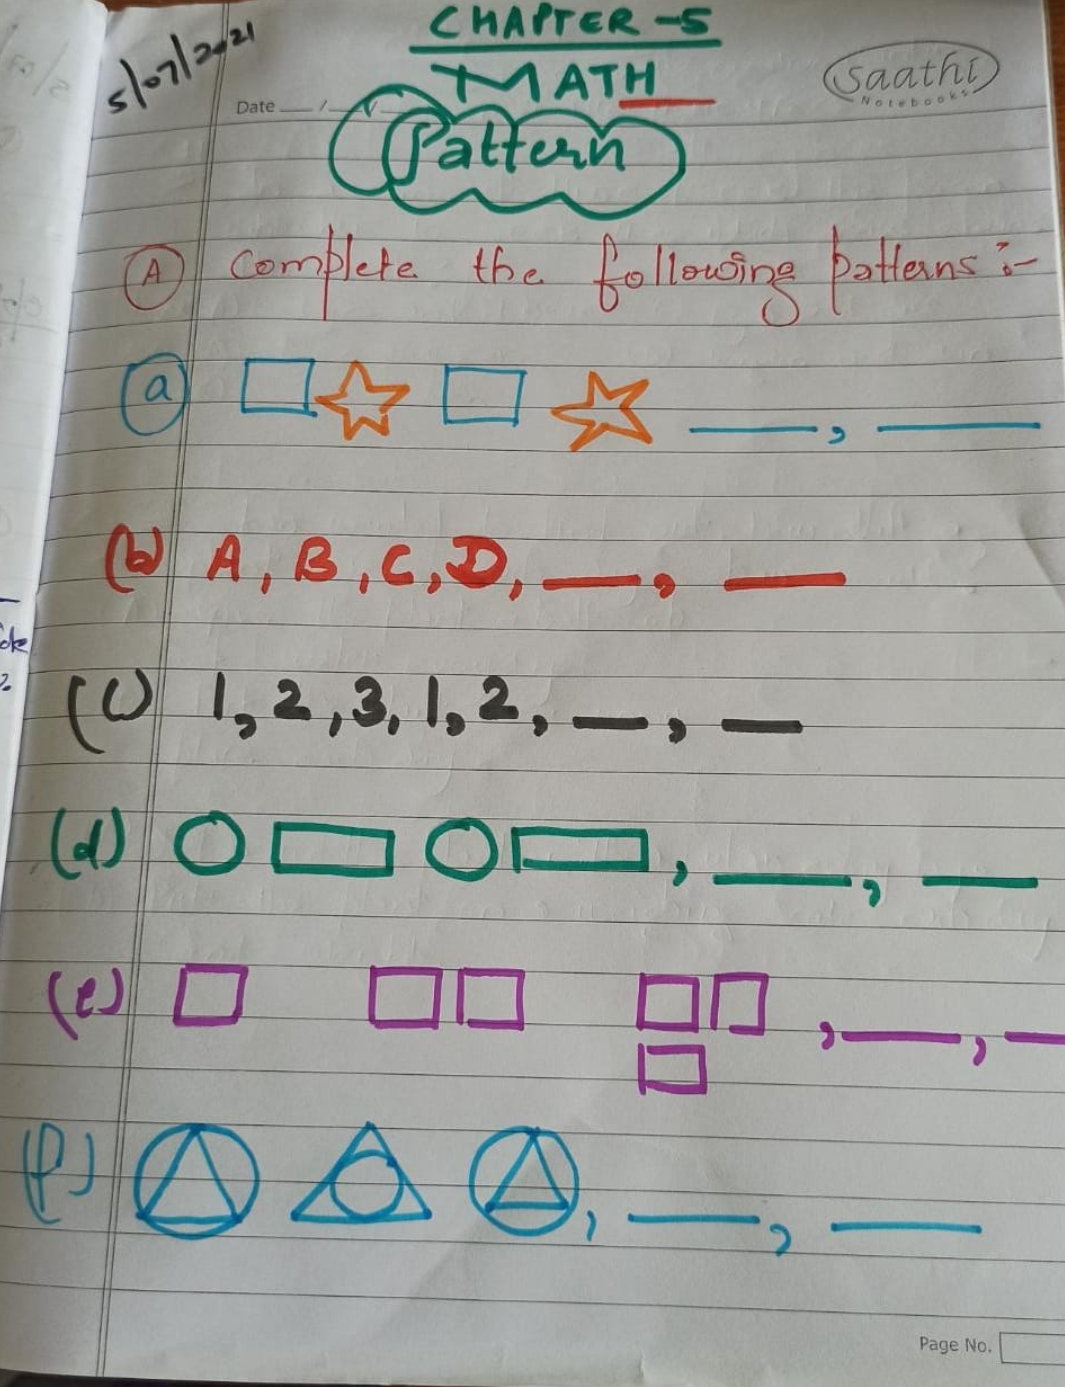 CHAPTER -5
5/07/2021
MATH
Saathi
Notebooks
Date __/__/
Pattern
(A) Complete the following patterns :-
(a) ____, ____
(b) A, B, C, D, ___, ___
(c) 1, 2, 3, 1, 2, ___, ___
(d) , ____, ____
(e) , ____, ____
(f) , ____, ____
Page No.